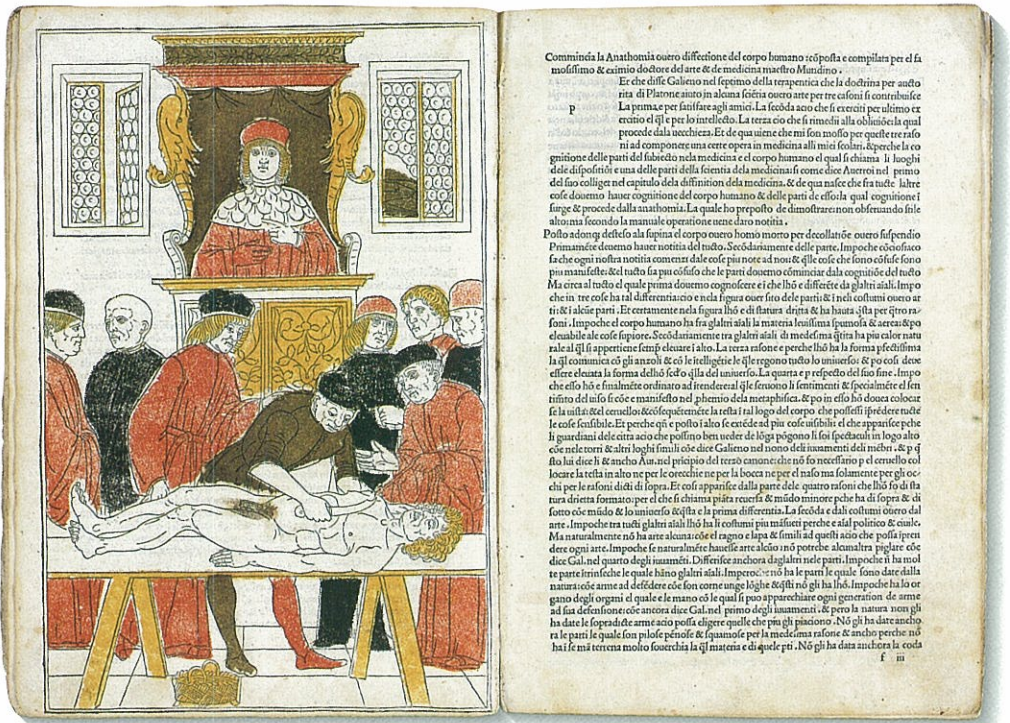 Commincia la Anathomia ouero dissectione del corpo humano: cõposta e compilata per el fa
mosissimo & eximio doctore del arte & de medicina maestro Mundino.
Et che disse Galieno nel septimo della terapentica che la doctrina per aucto
rita di Platone aiuto in alcuna sciẽtia ouero arte per tre casoni si contribuisce
p La prima, e per satisfare agli amici. La secõda acio che si exerciti per ultimo ex
ercitio el q̃l e per lo intellecto. La terza cio che si rimedii alla obliuiõe: la qual
procede dala uecchieza. Et de qua uiene che mi son mosso per queste tre raso
ni ad componere una certe opera in medicina alli miei scolari. &perche la co
gnitione delle parti del subiecto nela medicina e el corpo humano el qual si chiama li luoghi
dele dispositiõi e una delle parti della scientia dela medicina: si come dice Auerroi nel primo
del suo colliget nel capitulo dela diffinition dela medicina. & de qua nasce che fra tucte laltre
cose douemo hauer cognitione del corpo humano & delle parti de esso: la qual cognitione ĩ
surge & procede dalla anathomia. La quale ho preposto de dimostrare: non obseruando stile
alto: ma secondo la manuale operatione uene daro notitia.
Posto adonq; desteso ala supina el corpo ouero homo morto per decollatiõe ouero suspendio
Primamẽte deuemo hauer notitia del tucto. Secõdariamente delle parte. Impoche cõciosiaco
sa che ogni nostra notitia comenzi dale cose piu note ad noi: & q̃lle cose che sono cõfuse sono
piu manifeste: & el tucto sia piu cõfuso che le parti douemo cõminciar dala cognitiõe del tucto
Ma circa al tucto el quale prima douemo cognoscere ẽ che lhõ e differẽte da glaltri aĩali. Impo
che in tre cose ha tal differentia: cio e nela figura ouer sito dele parti: & ĩ neli costumi ouero ar
ti: & ĩ alcũe parti. Et certamente nela figura lhõ e di statura dritta & ha hauta q̃sta per q̃tro ra-
soni. Impoche el corpo humano ha fra glaltri aĩali la materia leuissima spumosa & aerea: & po
eleuabile ale cose supiore. Secõdariamente tra glaltri aĩali di medesima q̃tita ha piu calor natu
rale al q̃l si appertiene semp̃ eleuare ĩ alto. La terza rasone e perche lhõ ha la forma p̃fectissima
la q̃l comunica cõ gli anzoli & cõ le itelligẽtie le q̃le regono tucto lo uniuerso: & po cosi deue
essere eleuata la forma delhõ secõdo q̃lla del uniuerso. La quarta e p respecto del suo fine. Impo
che esso hõ e finalmẽte ordinato ad itendere: al q̃le seruono li sentimenti & specialmẽte el sen
timẽto del uiso si cõe e manifesto nel phemio dela metaphisica. & po in esso hõ douea colocar
se la uista: & el ceruello: & cõsequẽtemẽte la testa ĩ tal logo del corpo che possessi ĩprẽdere tucte
le cose sensibile. Et perche q̃n e posto ĩ alto se extẽde ad piu cose uisibili el che apparisce pche
li guardiani dele citta acio che possino ben ueder de lõga põgono li soi spectaculi in logo alto
cõe nele torri & altri loghi simili cõe dice Galieno nel nono deli iuuamenti deli mẽbri. & p q̃
sto lui dice li & ancho Aui. nel pricipio del terzo canone: che nõ fo necessario p el ceruello col
locare la testa in alto ne per le orecchie ne per la bocca ne per el naso ma solamente per gli oc-
chi per le rasoni dicti di sopra. Et cosi apparisce dalla parte dele quatro rasoni che lhõ fo di sta
tura drietta formato: per el che si chiama piãta reuersa & mũdo minore pche ha di sopra & di
sotto cõe mũdo & lo uniuerso & q̃sta e la prima differentia. La secõda e dali costumi ouero dal
arte. Impoche tra tucti glaltri aĩali lhõ ha li costumi piu mãsueti perche e aĩal politico & ciuile.
Ma naturalmente nõ ha arte alcuna: cõe el ragno e lapa & simili ad questi acio che possa ĩpren
dere ogni arte. Impoche se naturalmẽte hauesse arte alcũo: nõ potrebe alcunaltra piglare cõe
dice Gal. nel quarto degli iuuamẽti. Differisce anchora daglaltri nele parti. Impoche ñ ha mol
te parte ĩtrinseche le quale hãno glaltri aĩali. Imperoche nõ ha le parti le quale sono date dalla
natura: cõe arme ad defẽdere cõe son corne unge lõghe & q̃sti nõ gli ha lhõ. Impoche ha lo or
gano degli organi el quale e le mano cõ le qual si puo apparechiare ogni generation de arme
ad sua defensione: cõe ancora dice Gal. nel primo degli iuuamenti. & pero la natura non gli
ha date le sopradicte arme acio possa eligere quelle che piu gli piaciono. Nõ gli ha date ancho
ra le parti le quale son pilose pẽnose & squamose per la medesima rasone & ancho perche nõ
ha ĩ se mã terrena molto souerchia la q̃l materia e di quele pti. Nõ gli ha data anchora la coda
f iii